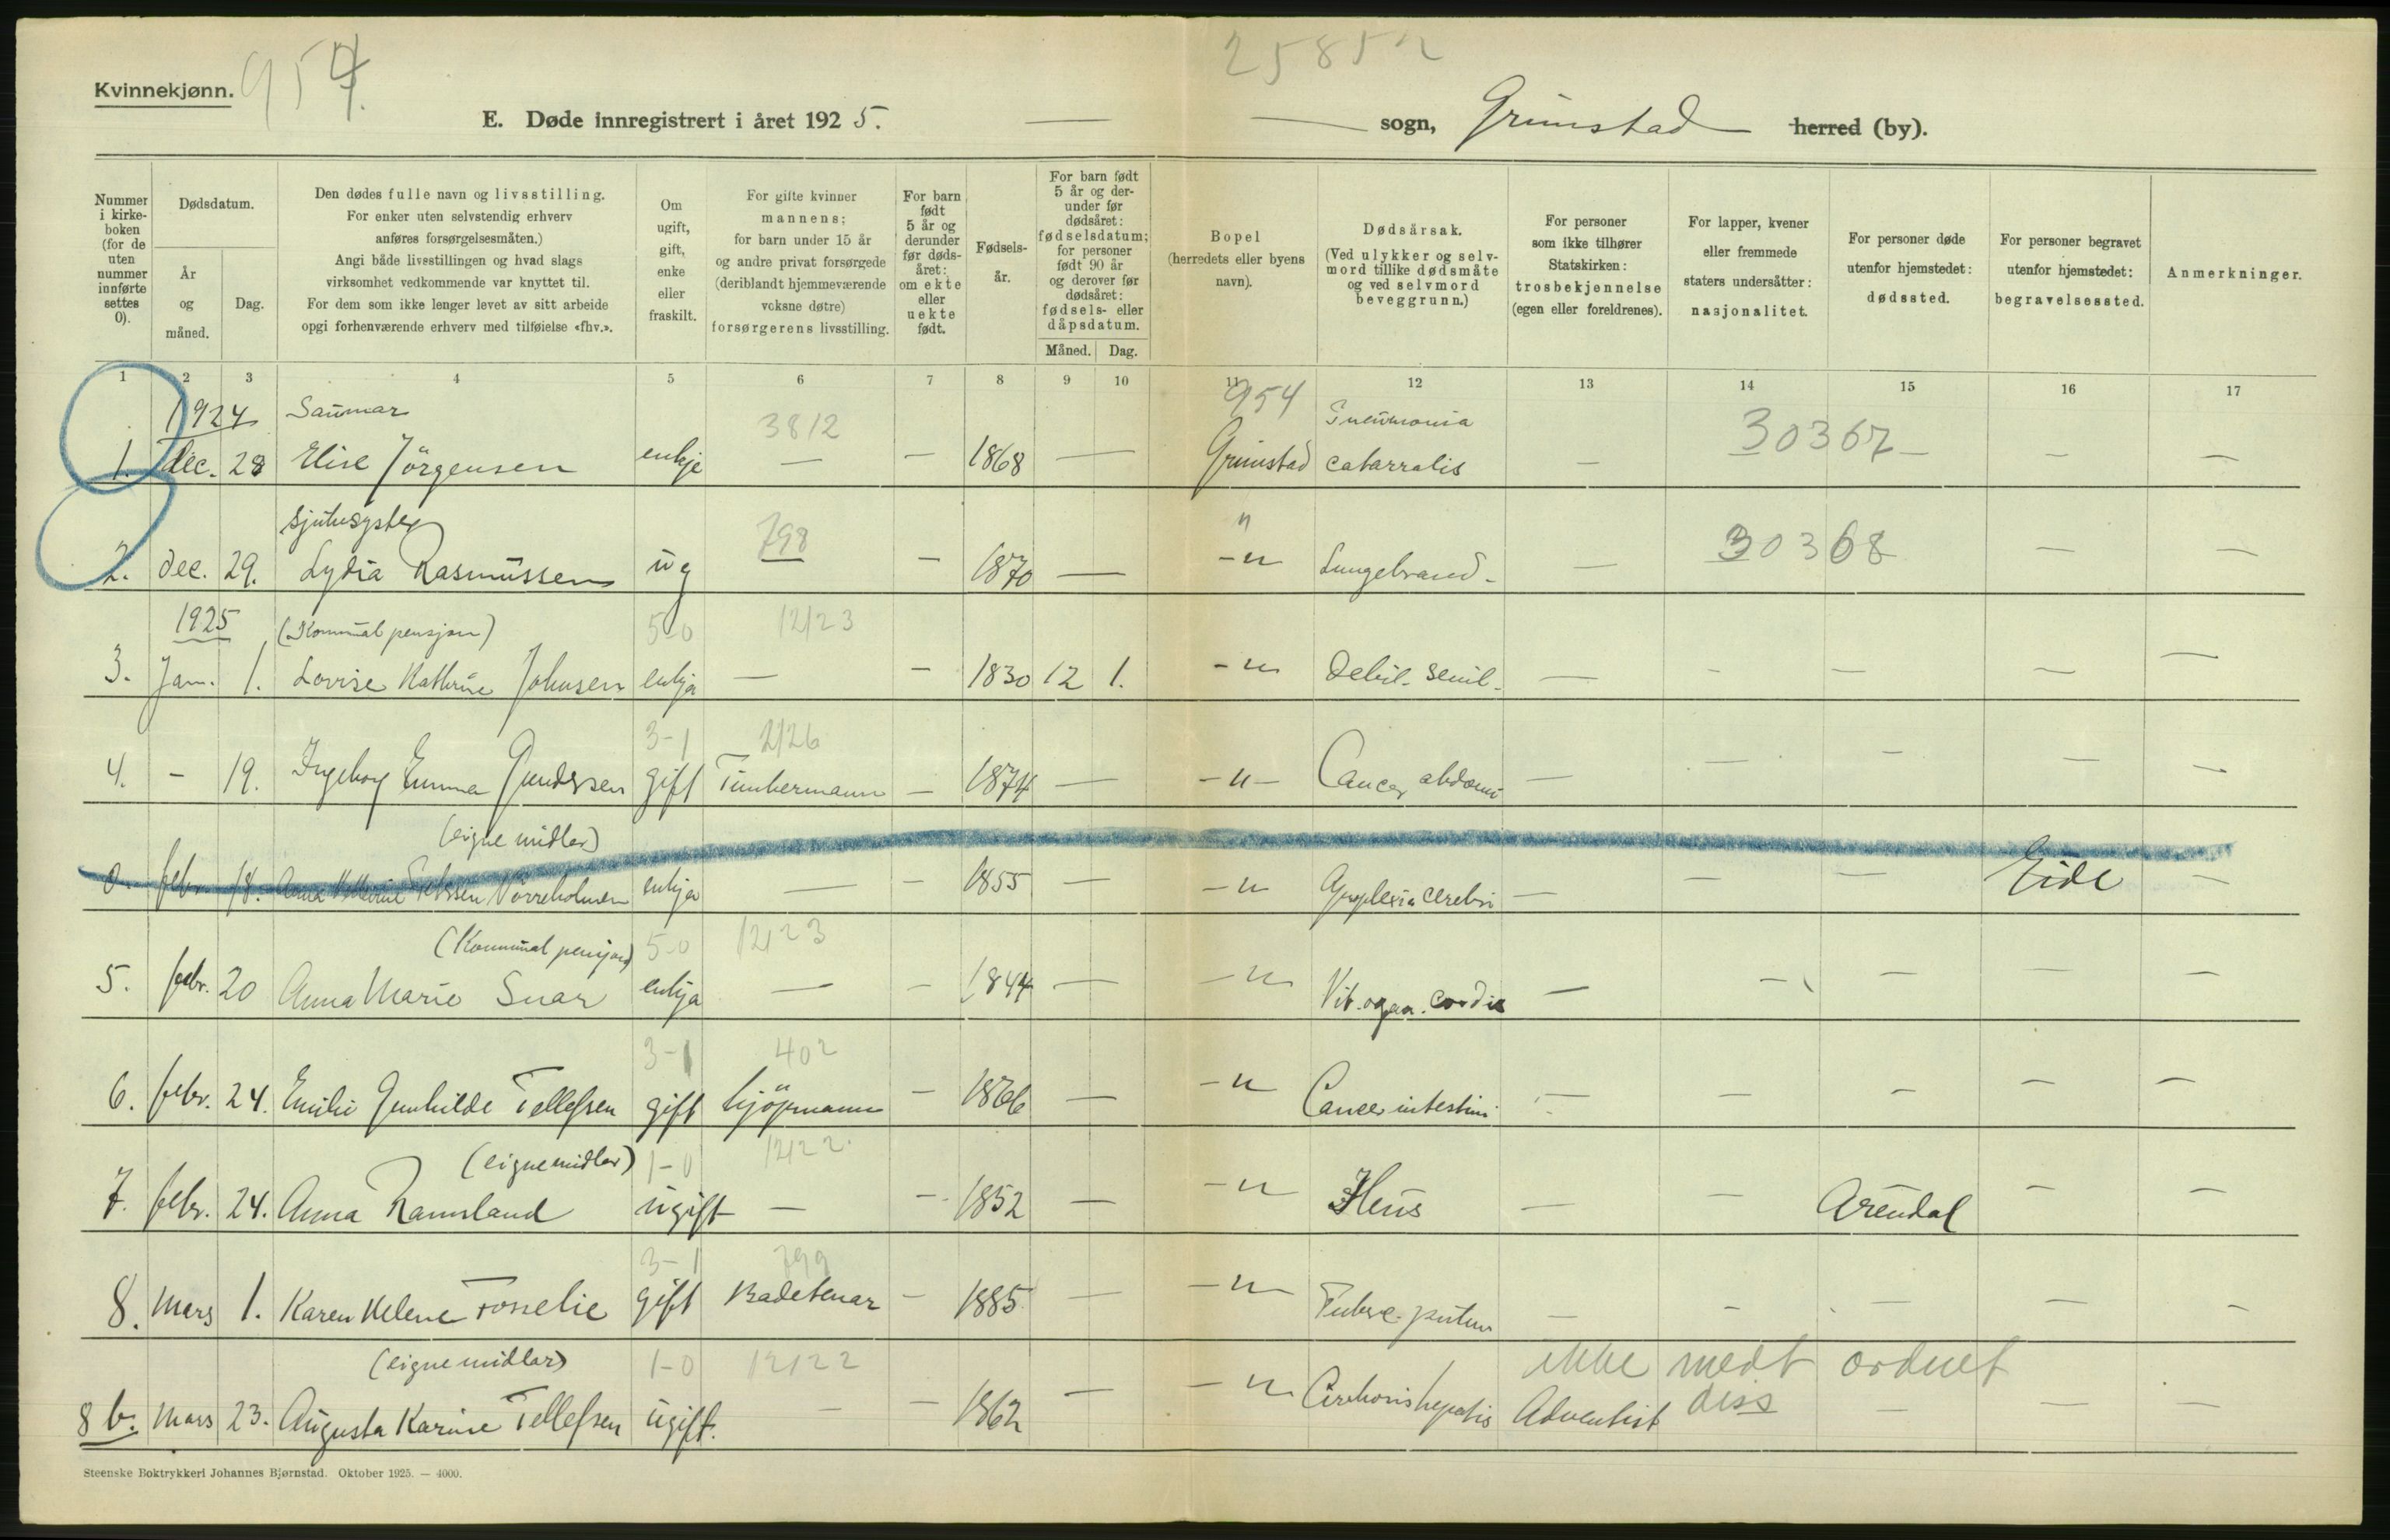 Kvinnekjønn.
954.
25852
E. Døde innregistrert i året 1925. — — sogn, Grimstad herred (by).
Nummer i kirkeboken (for de uten nummer innførte settes 0).
Dødsdatum.
År og måned.
Dag.
Den dødes fulle navn og livsstilling.
For enker uten selvstendig erhverv
anføres forsørgelsesmåten.)
Angi både livsstillingen og hvad slags
virksomhet vedkommende var knyttet til.
For dem som ikke lenger levet av sitt arbeide
opgi forhenværende erhverv med tilføielse «fhv.».
Om ugift, gift, enke eller fraskilt.
For gifte kvinner
mannens;
for barn under 15 år
og andre privat forsørgede
(deriblandt hjemmeværende
voksne døtre)
forsørgerens livsstilling.
For barn født 5 år og derunder før dødsåret: om ekte eller uekte født.
Fødselsår.
For barn født 5 år og derunder før dødsåret: fødselsdatum; for personer født 90 år og derover før dødsåret: fødsels- eller dåpsdatum.
Måned. Dag.
Bopel
(herredets eller byens
navn).
Dødsårsak.
(Ved ulykker og selvmord tillike dødsmåte og ved selvmord beveggrunn.)
For personer
som ikke tilhører
Statskirken:
trosbekjennelse
(egen eller foreldrenes).
For lapper, kvener
eller fremmede
staters undersåtter:
nasjonalitet.
For personer døde
utenfor hjemstedet:
dødssted.
For personer begravet
utenfor hjemstedet:
begravelsessted.
Anmerkninger.
1 2 3 4 5 6 7 8 9 10 11 12 13 14 15 16 17
1924 Saumar 3812 954 Pneumonia 30367
1. dec. 28 Elise Jörgensen enkje — — 1868 — Grimstad catarralis — — — —
sjukesyster 798 30368
2. dec. 29. Lydia Rasmussen ug — 1870 — -"- Lungebrand. — — —
1925 (Kommunal pensjon) 5-0 12123
3. Jan. 1. Lovise Kathrine Johnsen enkja — — 1830 12 1. -"- Debil. senil. — — — — —
3-1 2126
4. - 19. Ingeborg Emma Gundersen gift Timbermann — 1874 — -"- Cancer abdomi — — — — —
(eigne midler)
0 febr. 18. Anna Norreholmen enkja — — 1855 — -"- Apoplexia cerebri — — — Eide —
(Kommunal pensjon) 5-0 12123
5. febr. 20 Anna Marie Snar enkja — — 1844 — -"- Vit. organ. cordis — — — — —
3-1 402
6. febr. 24. Emilie Gunhilde Tellefsen gift kjöpmann — 1866 — -"- Cancer intestini — — — — —
(eigne midler) 1-0 12122
7. febr. 24. Anna Ramsland ugift — — 1852 — -"- Ileus — — Arendal — —
3-1 799
8. Mars 1. Karen Helene Fosselie gift Badetenar — 1885 — -"- Tuberc. pulm — — — — —
(eigne midlar) 1-0 12122 ikke medt ordnet
8 b. Mars 23. Augusta Karine Tellefsen ugift. — — 1862 — -"- Cirrhosis hepatis Adventist diss — — —
Steenske Boktrykkeri Johannes Bjørnstad. Oktober 1925. — 4000.